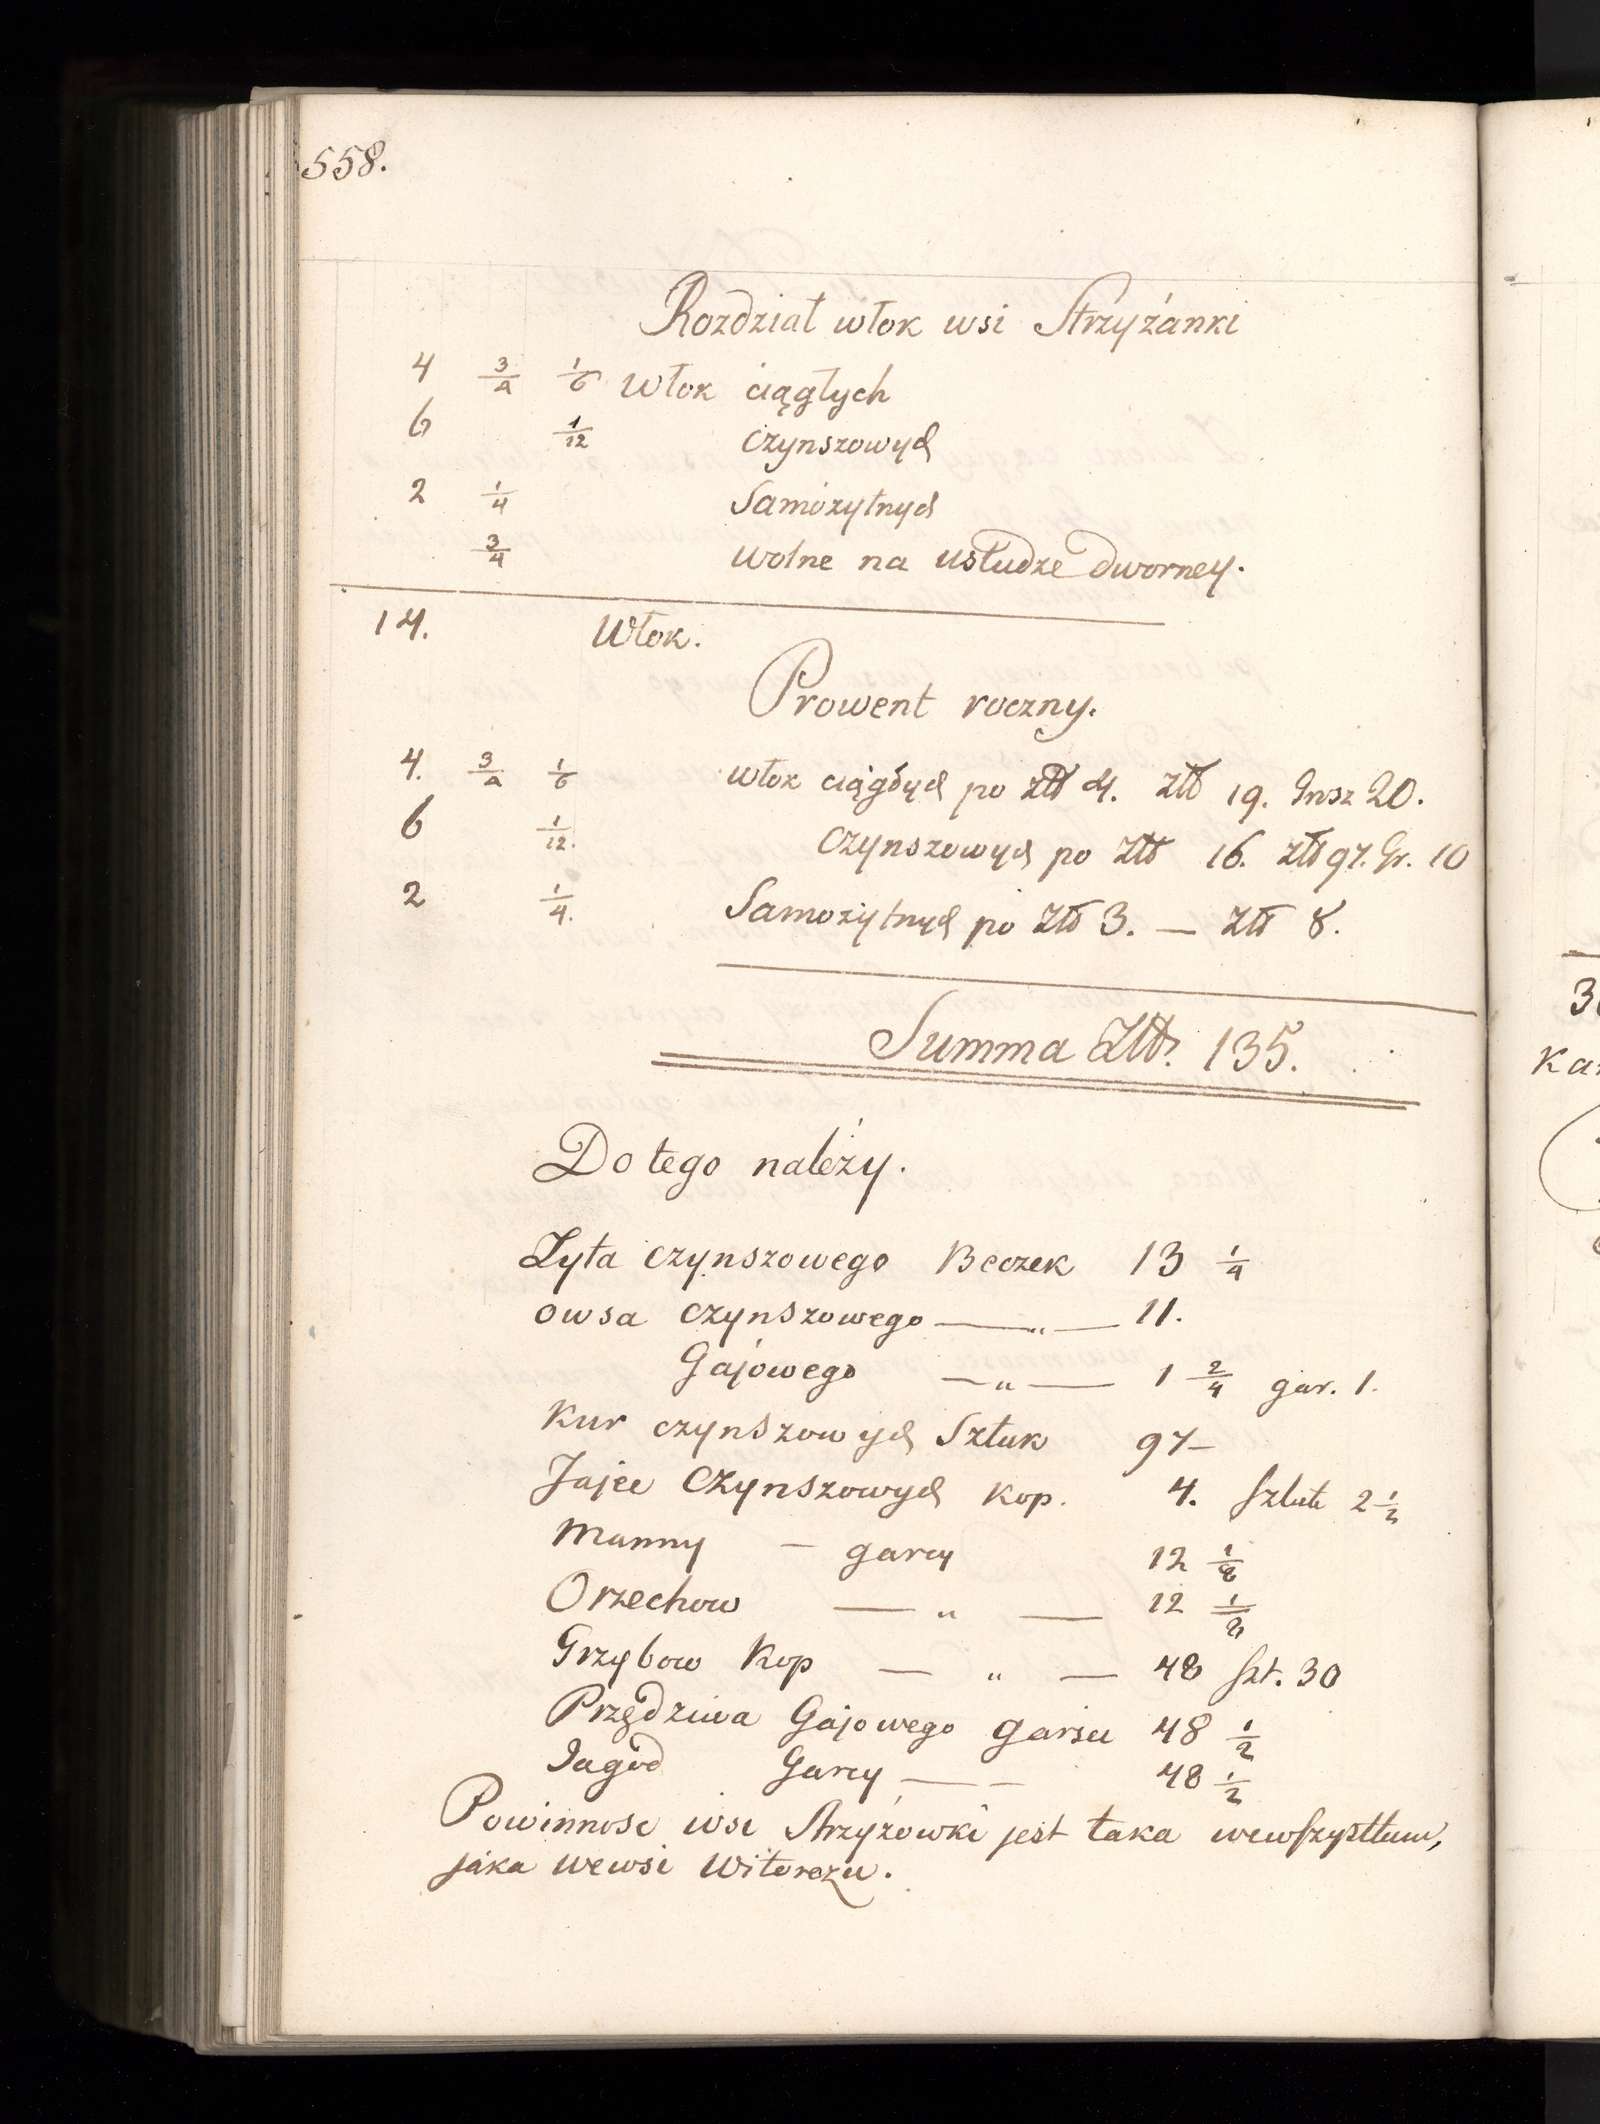 558.
Rozdział włok wsi Strzyżanki
4 3/4 1/6 włok ciągłych
6 1/12 czynszowych
2 1/4 Samożytnych
3/4 wolne na usłudze dworney.
14. Włok.
Prowent roczny.
4. 3/4 1/6 włok ciągłych po złł 4. złł 19. Grosz 20.
6 1/12. czynszowych po złł 16. złł 97. Gr. 10
2 1/4. Samożytnych po złł 3. — złł 8.
Summa Złł. 135.
Do tego należy.
Zyta czynszowego Beczek 13 1/4
owsa czynszowego — „ — 11.
Gajowego — „ — 1 2/4 gar. 1.
Kur czynszowych Sztuk 97 —
Jajec Czynszowych kop. 4. Sztuk 2 1/2
Manny — garcy 12 1/8
Orzechow — „ — 12 1/8
Grzybow Kop — „ — 48 szt. 30
Przędziwa Gajowego Garscu 48 1/2
Jagod Garcy — — 48 1/2
Powinnosc wsi Strzyżowki jest taka wewszystkim,
jaka wewsi Witorozu.